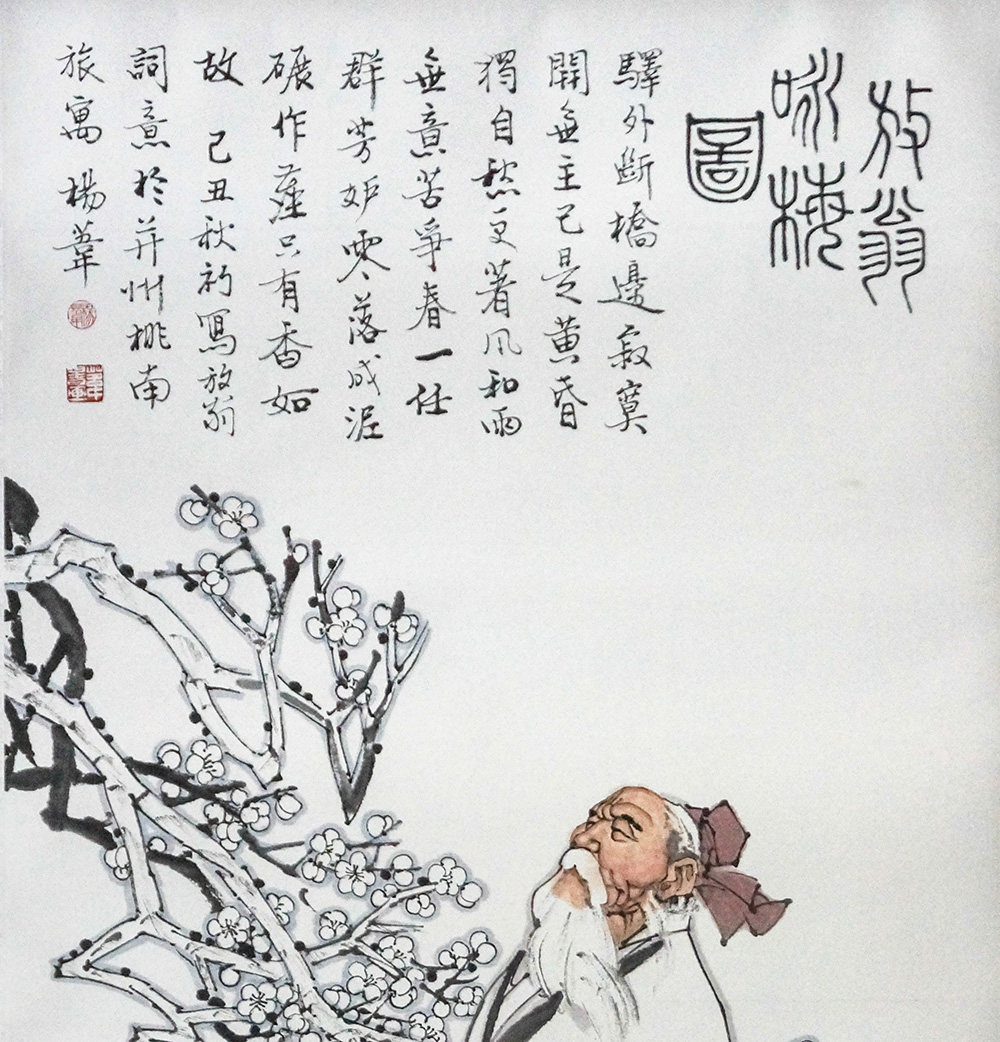 放翁
咏梅
圖
驛外斷橋邊寂寞
開無主已是黄昏
獨自愁更著風和雨
無意苦爭春一任
群芳妒零落成泥
碾作塵只有香如
故 己丑秋初寫放翁
詞意於并州桃南
旅寓 楊葦